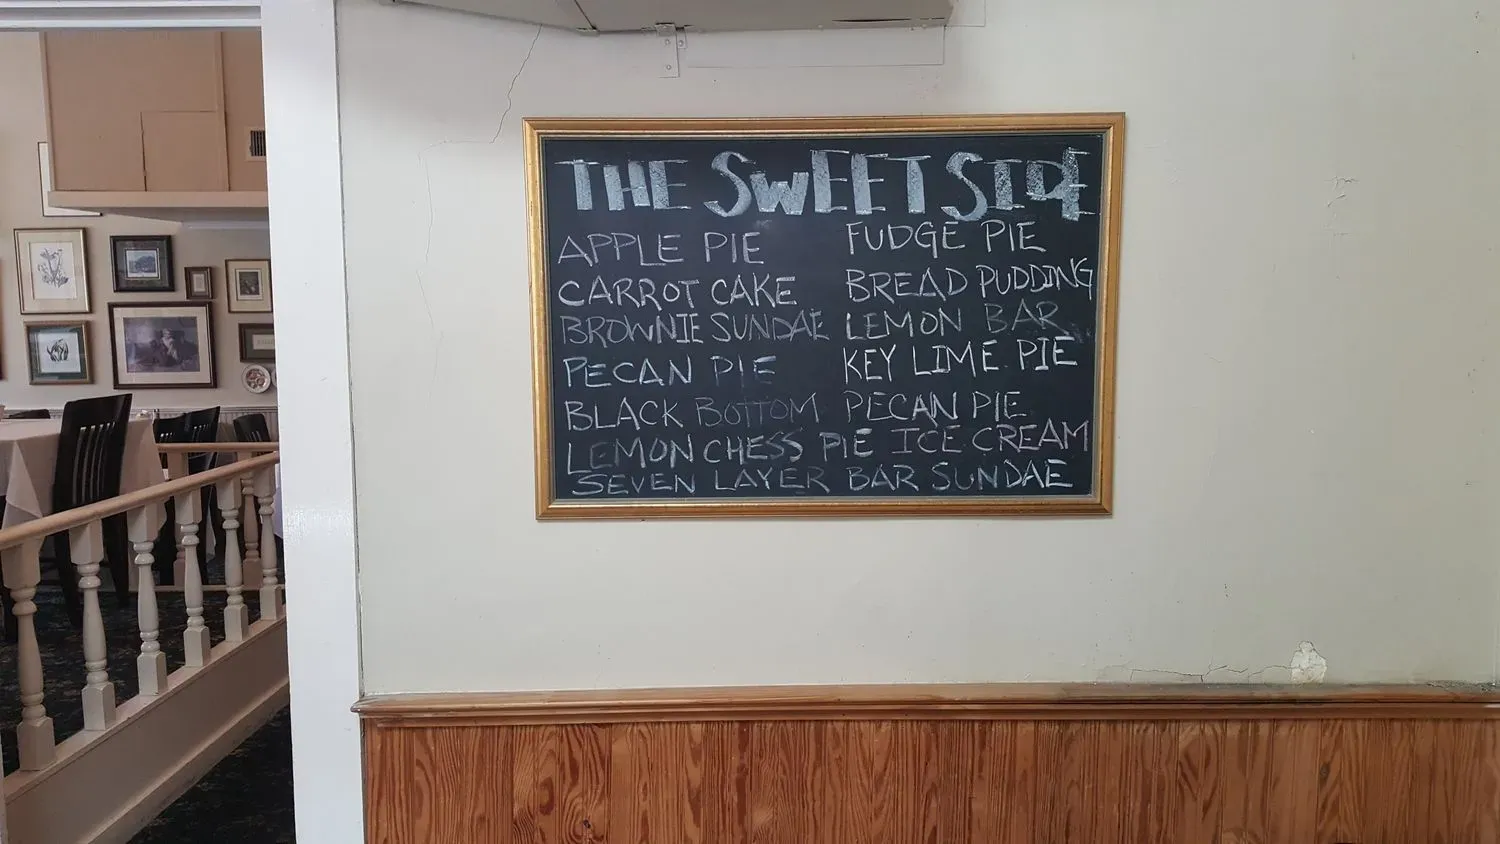 THE SWEET SIDE
APPLE PIE
CARROT CAKE
BROWNIE SUNDAE
PECAN PIE
BLACK BOTTOM
LEMON CHESS PIE
FUDGE PIE
BREAD PUDDING
LEMON BAR
KEY LIME PIE
PECAN PIE
ICE CREAM
SEVEN LAYER BAR SUNDAE